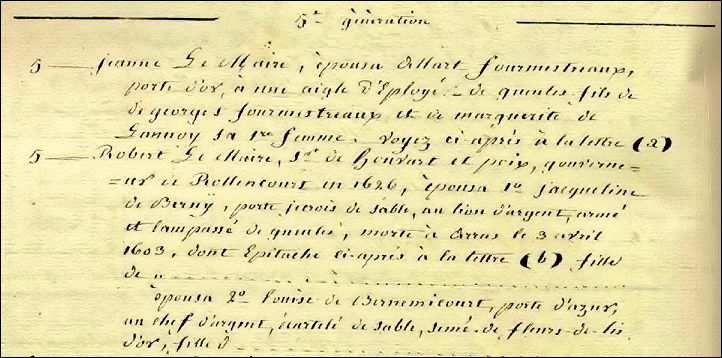 5e génération
5 — jeanne Le Maire, épousa Allart fourmestreaux,
porte d'or, à une aigle d'Eployé de gueules fils de
de georges fourmestreaux et de marguerite de
Lannoy sa 1re femme. voyez ci-après à la lettre (a)
5 — Robert Le Maire, Sr de et poix, gouverne=
=ur de Bollencourt en 1626, épousa 1o jacqueline
de Berny, porte de sable, au lion d'argent, armé
et lampassé de gueules, morte à arras le 3 avril
1603, dont Epitache ci-après à la lettre (b) fille
de
épousa 2o Louise de Bernemicourt, porte d'azur,
au chef d'argent, écartelé de sable, semé de fleurs-de-lis
d'or, fille d